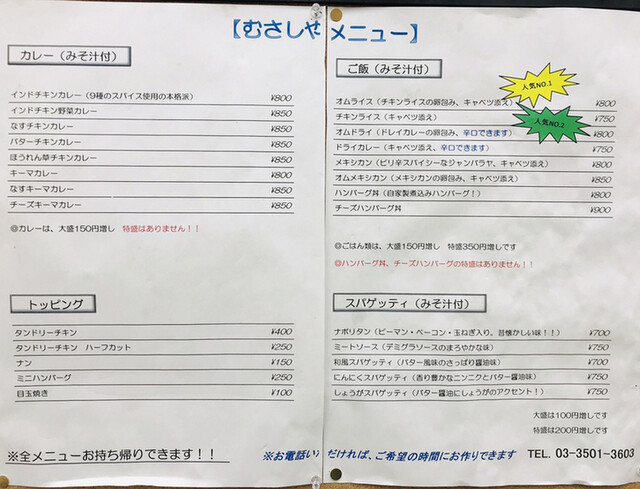 【むさしや メニュー】
カレー（みそ汁付）
インドチキンカレー（9種のスパイス使用の本格派） ¥800
インドチキン野菜カレー ¥850
なすチキンカレー ¥850
バターチキンカレー ¥850
ほうれん草チキンカレー ¥850
キーマカレー ¥800
なすキーマカレー ¥850
チーズキーマカレー ¥850
◎カレーは、大盛150円増し 特盛はありません！！
トッピング
タンドリーチキン ¥400
タンドリーチキン ハーフカット ¥250
ナン ¥150
ミニハンバーグ ¥250
目玉焼き ¥100
※全メニューお持ち帰りできます！！
ご飯（みそ汁付）
人気NO.1
オムライス（チキンライスの卵包み、キャベツ添え） ¥800
チキンライス（キャベツ添え） ¥750
人気NO.2
オムドライ（ドレイカレーの卵包み、辛口できます） ¥800
ドライカレー（キャベツ添え、辛口できます） ¥750
メキシカン（ピリ辛スパイシーなジャンバラヤ、キャベツ添え） ¥800
オムメキシカン（メキシカンの卵包み、キャベツ添え） ¥850
ハンバーグ丼（自家製煮込みハンバーグ！） ¥800
チーズハンバーグ丼 ¥900
◎ごはん類は、大盛150円増し 特盛350円増しです
◎ハンバーグ丼、チーズハンバーグの特盛はありません！！
スパゲッティ（みそ汁付）
ナポリタン（ピーマン・ベーコン・玉ねぎ入り。昔懐かしい味！！） ¥700
ミートソース（デミグラソースのまろやかな味） ¥750
和風スパゲッティ（バター風味のさっぱり醤油味） ¥700
にんにくスパゲッティ（香り豊かなニンニクとバター醤油味） ¥750
しょうがスパゲッティ（バター醤油にしょうがのアクセント！） ¥750
大盛は100円増しです
特盛は200円増しです
※お電話い だければ、ご希望の時間にお作りできます TEL. 03-3501-3603